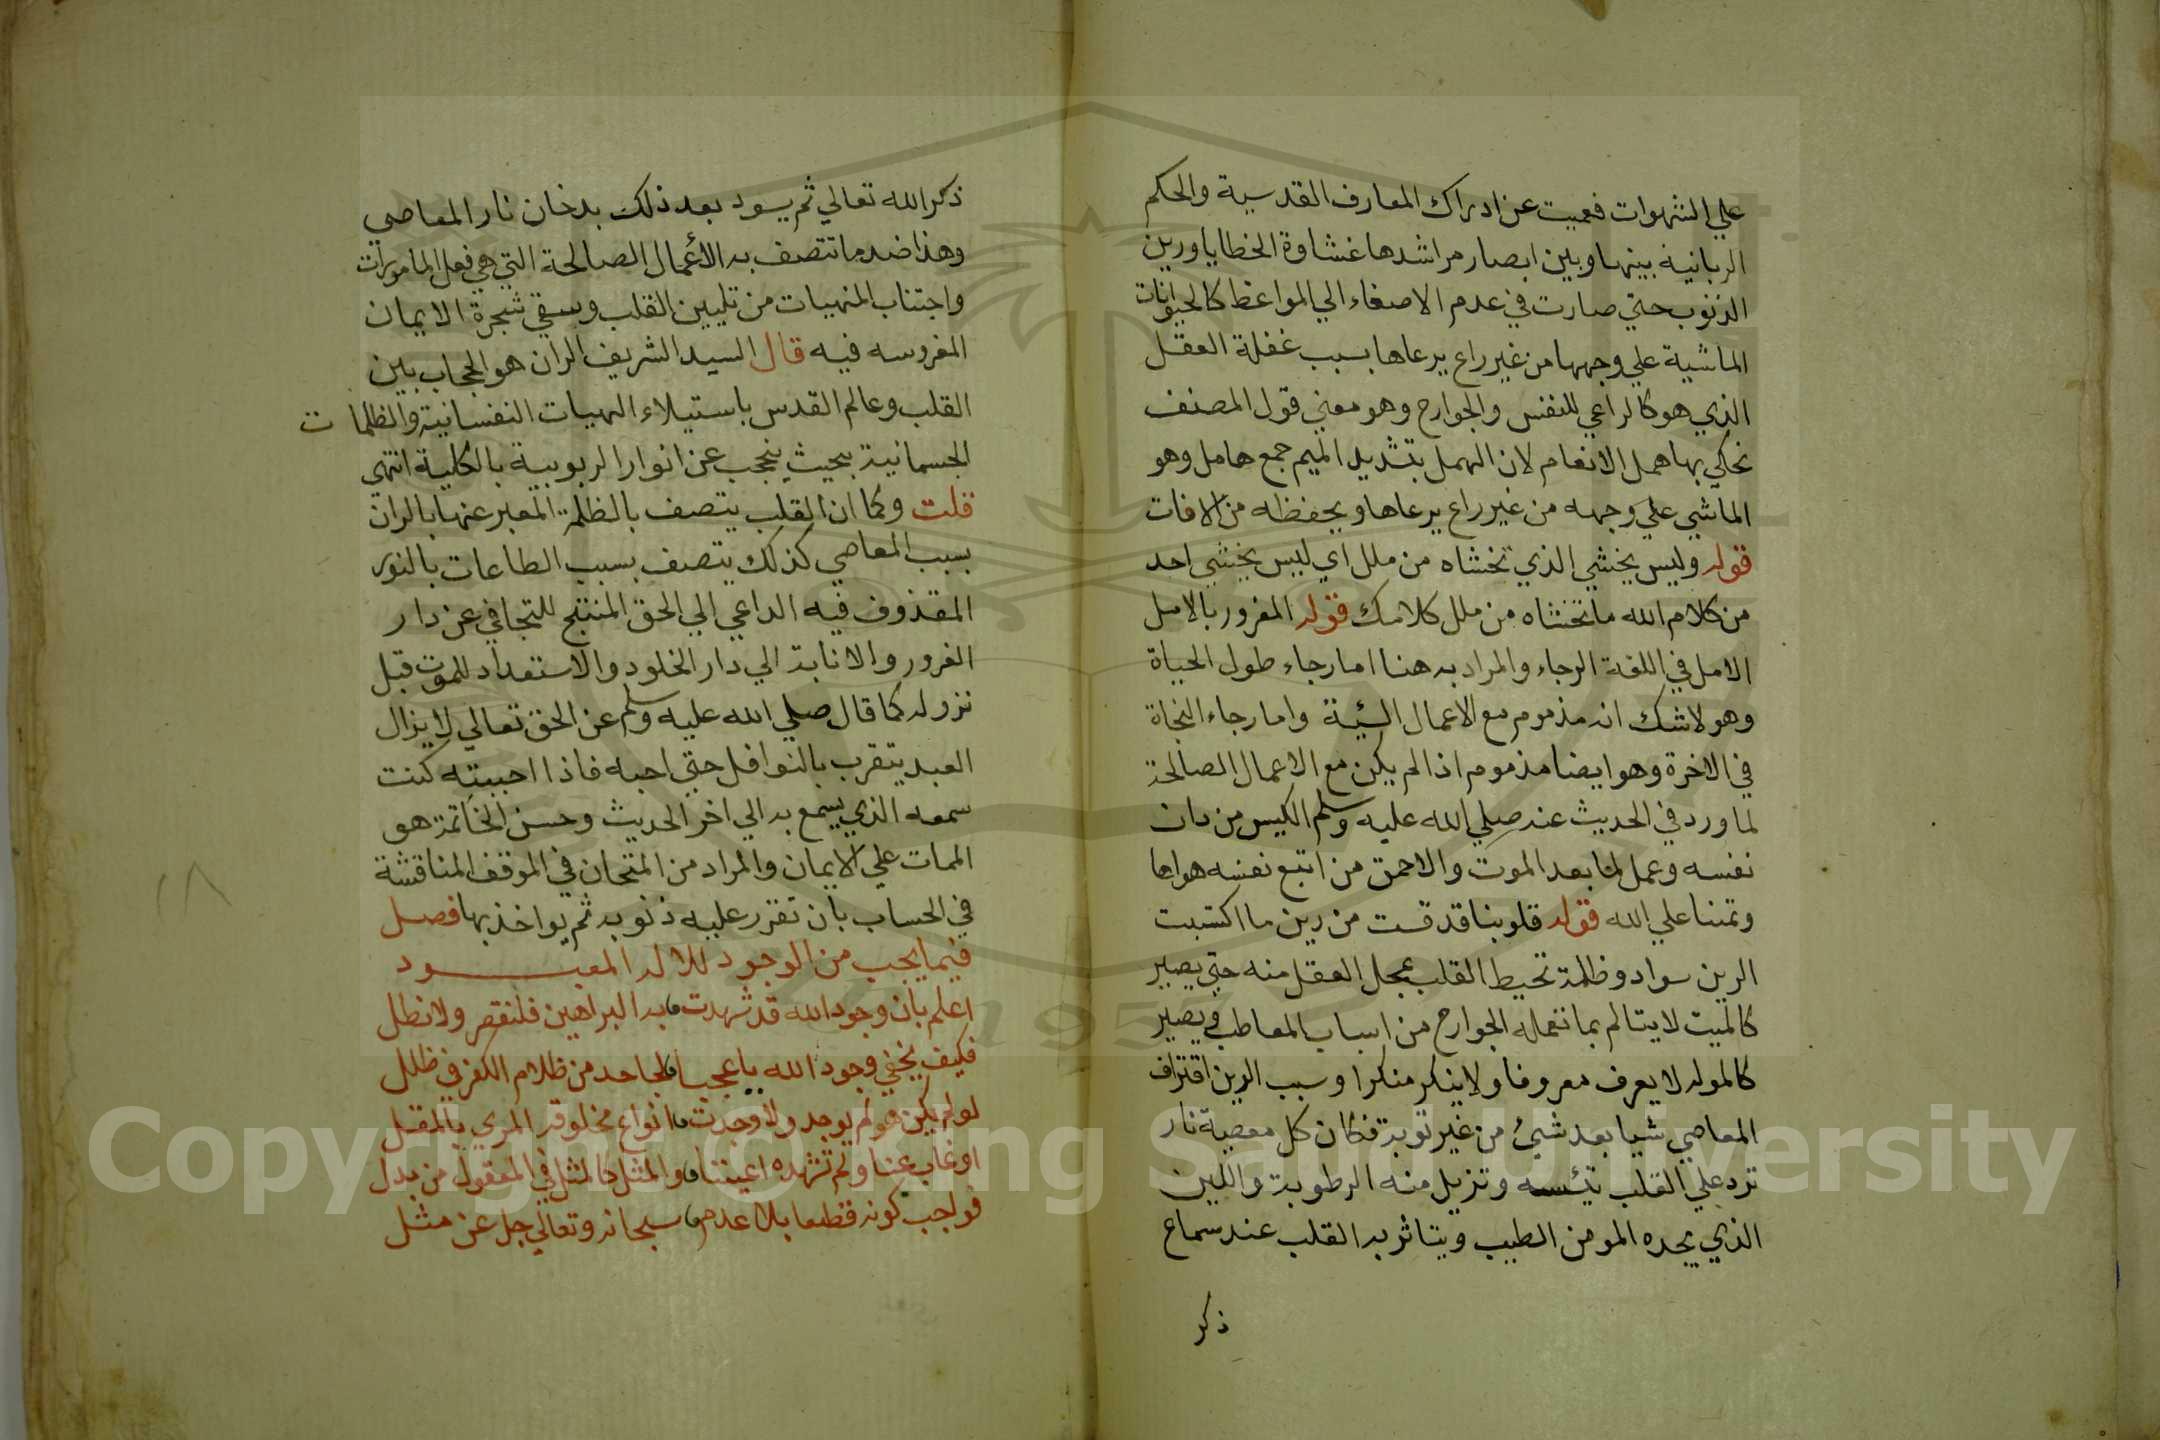 علي الشهوات فعميت عن ادراك المعارف القدسية والحكم
الربانية بينها وبين ابصار مراشدها غشاوة الخطايا ورين
الذنوب حتي صارت في عدم الاصغاء الي المواعظ كالحيوانات
الماشية علي وجهها من غير راع يرعاها بسبب غفلة العقل
الذي هو كالراعي للنفس والجوارح وهو معني قول المصنف
تحاكي بها همل الانعام لان الهمل بتشديد الميم جمع هامل وهو
الماشي علي وجهه من غير راع يرعاها ويحفظه من الافات
قوله وليس يخشي الذي تخشاه من ملل اي ليس يخشي احد
من كلام الله ما تخشاه من ملل كلامك قوله المغرور بالامل
الامل في اللغة الرجاء والمراد به هنا اما رجاء طول الحياة
وهو لاشك انه مذموم مع الاعمال السيئة واما رجاء النجاة
في الاخرة وهو ايضا مذموم اذا لم يكن مع الاعمال الصالحة
لما ورد في الحديث عنه صلي الله عليه وسلم الكيس من دان
نفسه وعمل لما بعد الموت والاحمق من اتبع نفسه هواها
وتمنا علي الله قوله قلوبنا قد قست من رين ما اكتسبت
الرين سواد وظلمة تحيط القلب بمحل العقل منه حتي يصير
كالميت لا يتالم بما تعمله الجوارح من اسباب المعاطب ويصير
كالموله لا يعرف معروفا ولا ينكر منكرا وسبب الرين اقتراف
المعاصي شيا بعد شيئ من غير توبة فكان كل معصية نار
ترد علي القلب تيئسه وتزيل منه الرطوبة واللين
الذي يجده المومن الطيب ويتاثر به القلب عند سماع
ذكر
ذكر الله تعالي ثم يسود بعد ذلك بدخان نار المعاصي
وهذا ضد ما تتصف به الأعمال الصالحة التي هي فعل المامورات
واجتناب المنهيات من تليين القلب وسقي شجرة الايمان
المغروسه فيه قال السيد الشريف الران هو الحجاب بين
القلب وعالم القدس باستيلاء الهيات النفسانية والظلمات
الجسمانية بحيث ينحجب عن انوار الربوبية بالكلية انتهي
قلت وكما ان القلب يتصف بالظلمة المعبر عنها بالران
بسبب المعاصي كذلك يتصف بسبب الطاعات بالنور
المقذوف فيه الداعي الي الحق المنتج للتجافي عن دار
الغرور والانابة الي دار الخلود والاستعداد للموت قبل
نزوله كما قال صلي الله عليه وسلم عن الحق تعالي لا يزال
العبد يتقرب بالنوافل حتي احبه فاذا احببته كنت
سمعه الذي يسمع به الي اخر الحديث وحسن الخاتمة هو
الممات علي الايمان والمراد من المتحان في الموقف المناقشة
في الحساب بان تقرر عليه ذنوبه ثم يواخذ بها فصل
فيما يجب من الوجود للاله المعبود
اعلم بان وجود الله قد شهدت به البراهين فلنقصر ولا نطل
فكيف يخفي وجود الله يا عجبا لجاحد من ظلام الكفر في ظلل
لو لم يكن هو لم يوجد ولا وجدت انواع مخلوقه المري بالمقل
او غاب عنا ولم تشهده اعيننا والمثل كالمثل في المعقول من بدل
فواجب كونه قطعا بلا عدم سبحانه وتعالي جل عن مثل
١٨
Copyright © King Saud University
1957